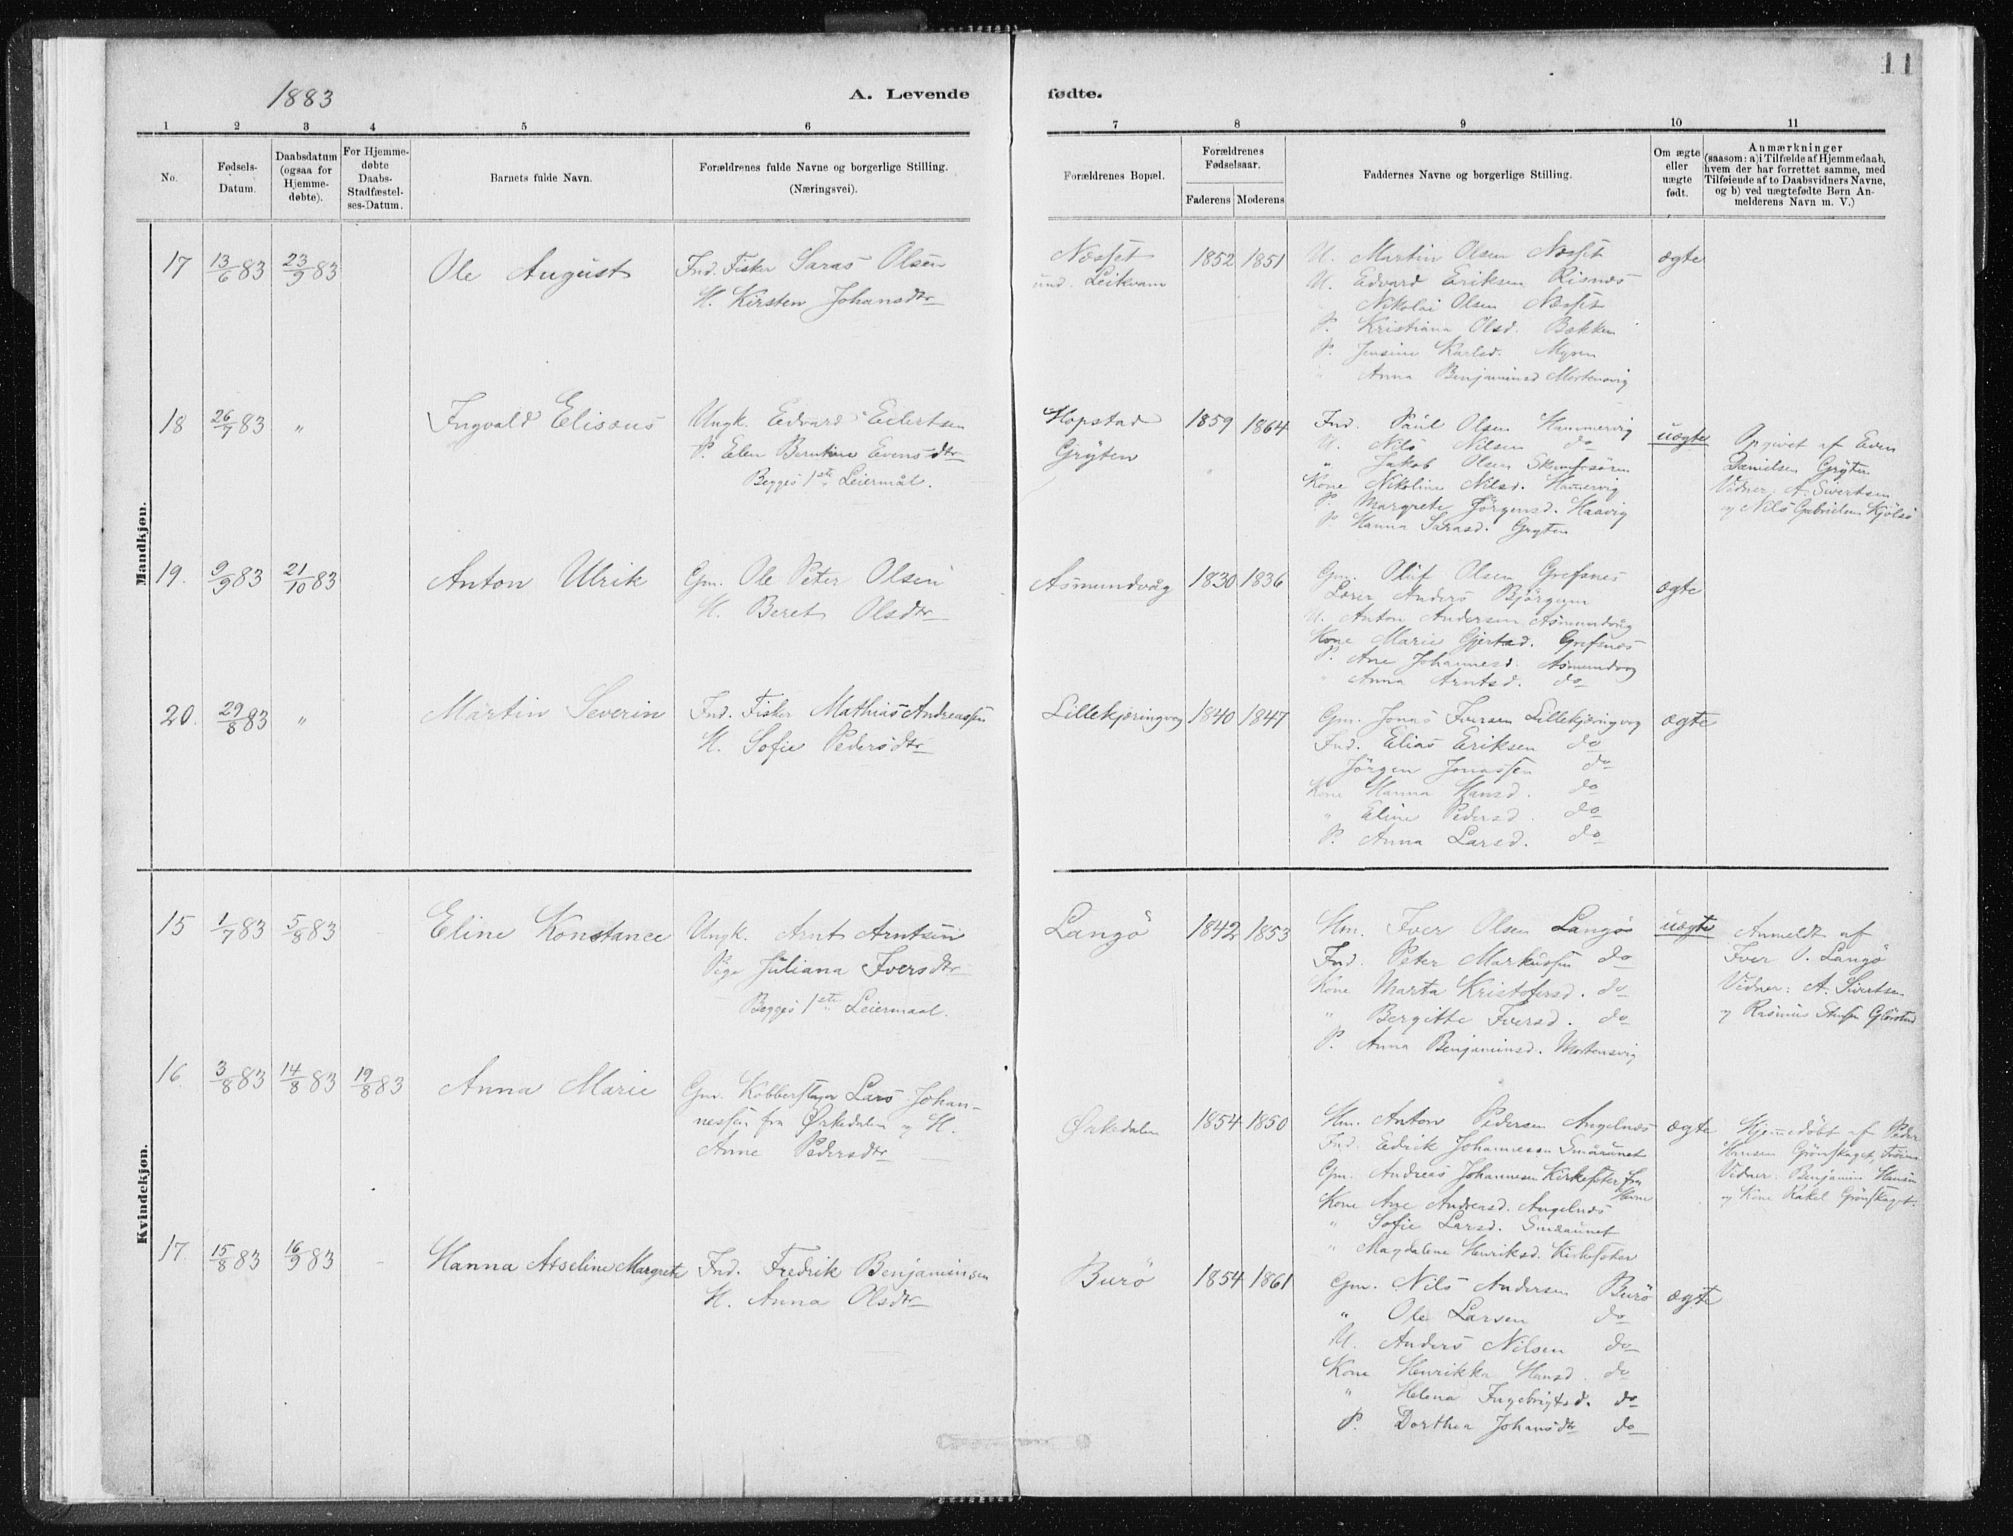 11
1883
A. Levende fødte.
1 2 3 4 5 6 7 8 9 10 11
No.
Fødsels-
Datum.
Daabsdatum
(ogsaa for
Hjemme-
døbte).
For Hjemme-
døbte
Daabs-
Stadfæstel-
ses-Datum.
Barnets fulde Navn.
Forældrenes fulde Navne og borgerlige Stilling.
(Næringsvei).
Forældrenes Bopæl.
Forældrenes
Fødselsaar.
Faderens Moderens
Faddernes Navne og borgerlige Stilling.
Om ægte
eller
uægte
født.
Anmærkninger
(saasom: a) i Tilfælde af Hjemmedaab,
hvem der har forrettet samme, med
Tilføiende af to Daabsvidners Navne,
og b) ved uægtefødte Børn An-
melderens Navn m. V.)
Mandkjøn.
17 13/6 83 23/9 83 Ole August
Ind. Fisker Saras Olsen
H. Kirsten Johansdtr
Næsset
und. Leikvam
1852 1851
U. Martin Olsen Næsset
U. Edvard Eriksen Risnæs
Nikolai Olsen Næsset
P. Kristiana Olsd. Bækken
P. Jensine Karlsd. Myren
" Anna Benjaminsd Mortensvig
ægte
18 26/7 83 " Ingvald Elisæus
Ungk. Edvard Eilertsen
P. Elen Berntine Evensdtr
Begges 1ste Leiermål.
Hopstad
Gryten
1859 1864
Ind. Paul Olsen Hammervig
U. Nils Nilsen do
" Jakob Olsen
Kone Nikoline Nilsd. Hamervig
P. Margrete Jörgensd. Haavig
P. Hanna Sarasd. Gryten
uægte
Opgivet af Even
Danielsen Gryten
Vidner: A. Sivertsen
og Nils Gabrielsen Kjölsö
19. 9/9 83 21/10 83 Anton Ulrik
Gm. Ole Peter Olsen
H. Beret Olsdtr
Asmundvåg
1830 1836
Gm. Oluf Olsen Grefsnes
Lærer Anders Bjørgum
U. Anton Andersen Asmundvåg
Kone Marie Gjertsd. Grefsnæs
P. Ane Johannesd. Asmundvog
" Anna Arntsd. do
ægte
20. 29/8 83 " Martin Severin
Ind. Fisker Mathias Andreassen
H. Sofie Pedersdtr
Lillekjæringvog
1840 1847
Gm. Jonas Iversen Lillekjæringvog
Ind. Elias Eriksen do
Jörgen Jonassen do
Kone Hanna Hansd. do
" Eline Pedersd. do
P. Anna Larsd. do
ægte
Kvindekjøn.
15 1/7 83 5/8 83 Eline Konstance
Ungk. Arnt Arntsen
Pige Juliana Iversdtr
Begges 1ste Leiermaal.
Langö
1842 1853
Hm. Iver Olsen Langö
Ind. Peter Markussen do
Kone Marta Kristofersd. do
" Bergitte Iversd. do
P. Anna Benjaminsd. Mortensvig
uægte
Anmeldt af
Iver O. Langö
Vidner: A. Sivertsen
og Rasmus
16. 3/8 83 14/8 83 19/8 83 Anna Marie
Gm. Kobberslager Lars Johan-
nessen fra Ørkedalen og H.
Anne Pedersdtr
Ørkedalen
1854 1850
Hm. Anton Pedersen Angelnæs
Ind. Edrik Johannessen Småaunet
Gm. Andreas Johannesen Kirksæter fra
Hevne
Kone Ane Andreasd. Angelnæs
" Sofie Larsd. Smaaunet
" Magdalene Henriksd. Kirksæter
ægte
Hjemmedöbt af Peder
Hansen Grönskaget,
Vidner: Benjamin Hansen
og Kone Rakel Grönskaget.
17. 15/8 83 16/9 83 Hanna Asseline Margrete
Ind. Fredrik Benjaminsen
H. Anna Olsdtr
Burö
1854 1861
Gm. Nils Andersen Burö
" Ole Larsen do
U. Anders Nilsen do
Kone Henrikka Hansd. do
" Helena Ingebrigtsd. do
P. Dorthea Johansdtr do
ægte